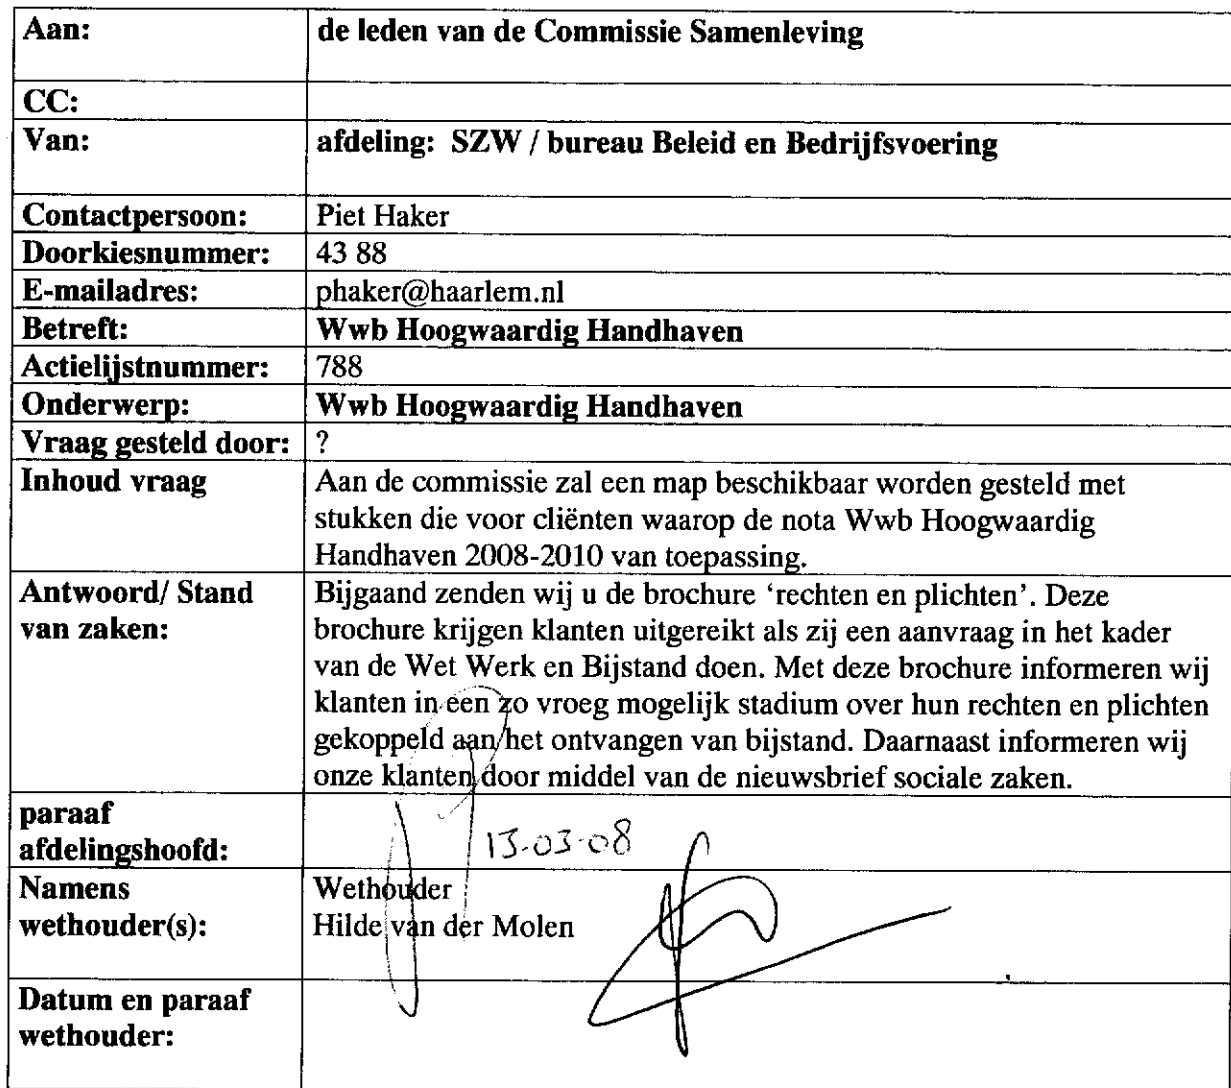 Aan: de leden van de Commissie Samenleving
CC:
Van: afdeling: SZW / bureau Beleid en Bedrijfsvoering
Contactpersoon: Piet Haker
Doorkiesnummer: 43 88
E-mailadres: phaker@haarlem.nl
Betreft: Wwb Hoogwaardig Handhaven
Actielijstnummer: 788
Onderwerp: Wwb Hoogwaardig Handhaven
Vraag gesteld door: ?
Inhoud vraag Aan de commissie zal een map beschikbaar worden gesteld met
stukken die voor cliënten waarop de nota Wwb Hoogwaardig
Handhaven 2008-2010 van toepassing.
Antwoord/ Stand Bijgaand zenden wij u de brochure ‘rechten en plichten’. Deze
van zaken: brochure krijgen klanten uitgereikt als zij een aanvraag in het kader
van de Wet Werk en Bijstand doen. Met deze brochure informeren wij
klanten in een zo vroeg mogelijk stadium over hun rechten en plichten
gekoppeld aan het ontvangen van bijstand. Daarnaast informeren wij
onze klanten door middel van de nieuwsbrief sociale zaken.
paraaf
afdelingshoofd: 13-03-08
Namens Wethouder
wethouder(s): Hilde van der Molen
Datum en paraaf
wethouder: